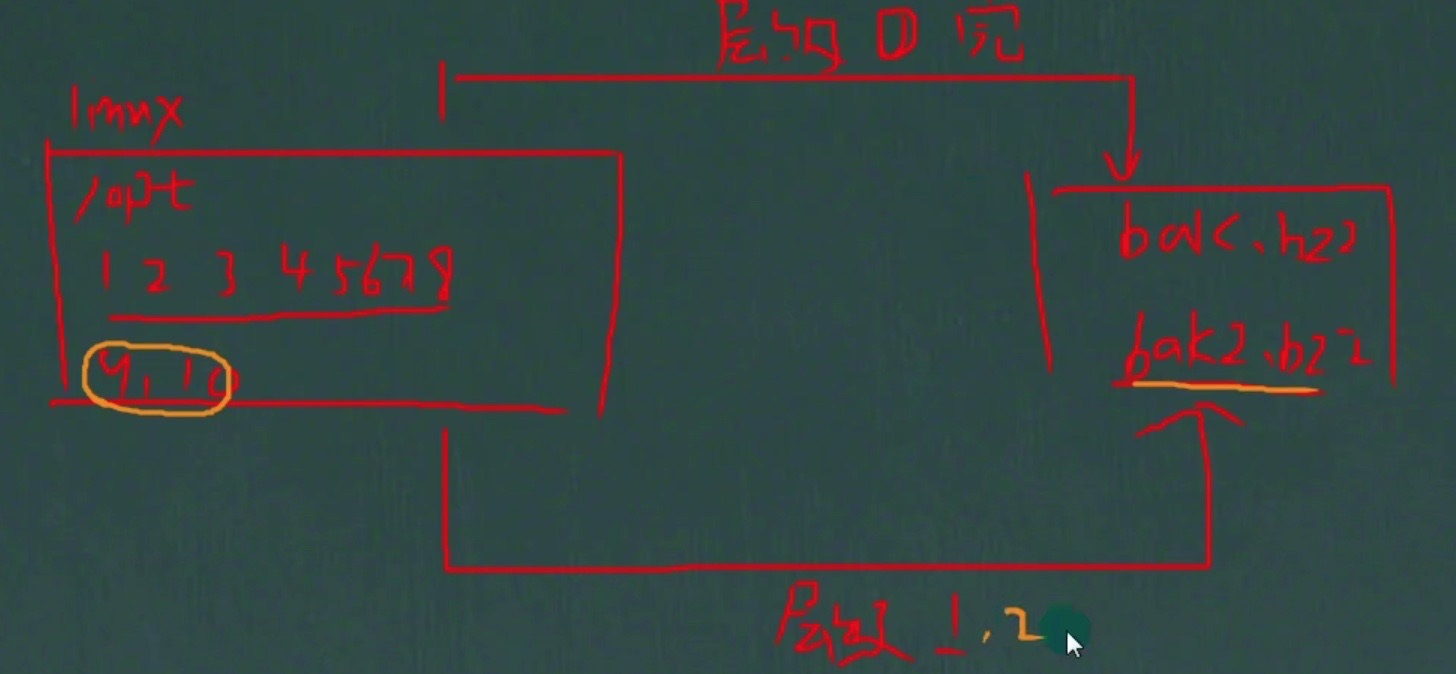 层级 0 完
linux
/opt
1 2 3 4 5 6 7 8
9, 10
bak.bz2
bak2.bz2
层级 1, 2